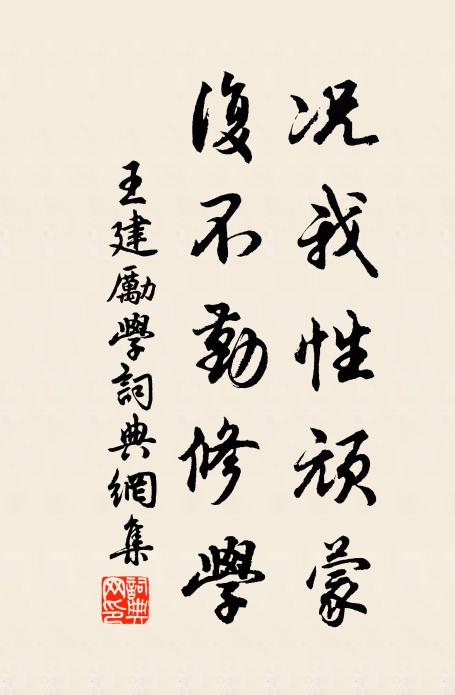 况我性顽蒙
復不勤修學
王建勵學詞典網集
詞典網印